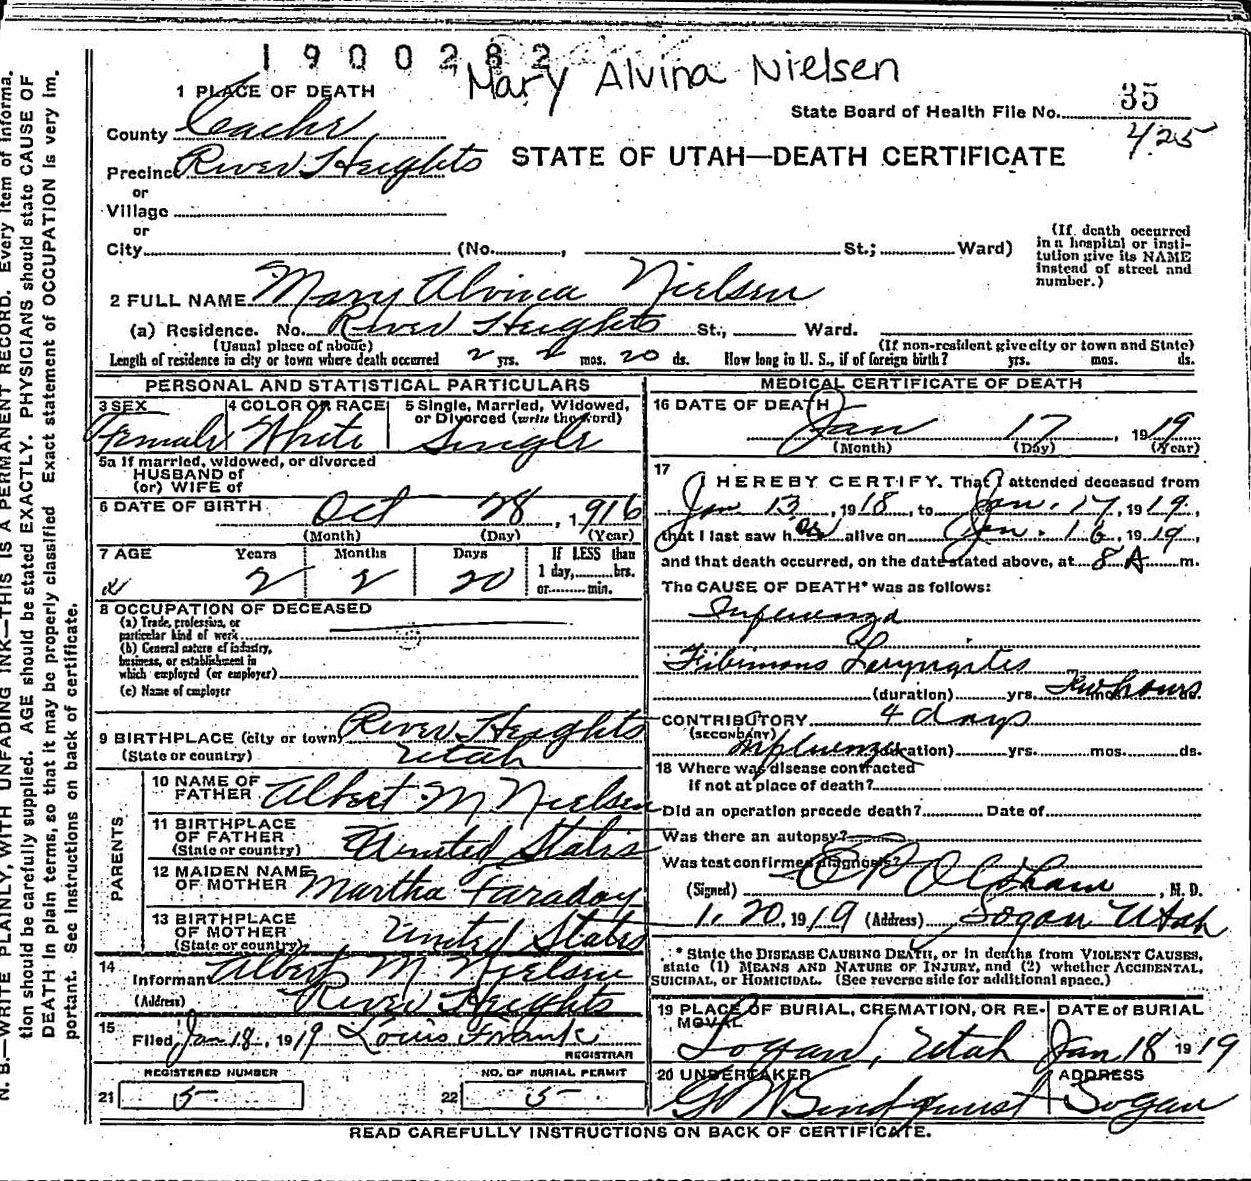 1900282
Mary Alvina Nielsen
1 PLACE OF DEATH
State Board of Health File No. 35
425
County Cache
STATE OF UTAH—DEATH CERTIFICATE
Precinct River Heights
or
Village
or
City (No. , St.; Ward)
(If death occurred
in a hospital or insti-
tution give its NAME
instead of street and
number.)
2 FULL NAME Mary Alvina Nielsen
(a) Residence. No. River Heights St., Ward.
(Usual place of abode) (If non-resident give city or town and State)
Length of residence in city or town where death occurred 2 yrs. 2 mos. 20 ds. How long in U. S., if of foreign birth? yrs. mos. ds.
PERSONAL AND STATISTICAL PARTICULARS
3 SEX 4 COLOR OR RACE 5 Single, Married, Widowed,
or Divorced (write the word)
Female White Single
5a If married, widowed, or divorced
HUSBAND of
(or) WIFE of
6 DATE OF BIRTH Oct 28, 1916
(Month) (Day) (Year)
7 AGE Years Months Days If LESS than
1 day, hrs.
or min.
2 2 20
8 OCCUPATION OF DECEASED
(a) Trade, profession, or
particular kind of work
(b) General nature of industry,
business, or establishment in
which employed (or employer)
(c) Name of employer
9 BIRTHPLACE (city or town) River Heights
(State or country) Utah
PARENTS
10 NAME OF
FATHER Albert M Nielsen
11 BIRTHPLACE
OF FATHER
(State or country) United States
12 MAIDEN NAME
OF MOTHER Martha Faraday
13 BIRTHPLACE
OF MOTHER
(State or country) United States
14
Informant Albert M Nielsen
(Address) River Heights
15
Filed Jan 18, 1919 Louis Frank
REGISTRAR
REGISTERED NUMBER NO. OF BURIAL PERMIT
21 5 22 5
MEDICAL CERTIFICATE OF DEATH
16 DATE OF DEATH
Jan 17, 1919
(Month) (Day) (Year)
17
I HEREBY CERTIFY, That I attended deceased from
Jan 13, 1918, to Jan. 17, 1919,
that I last saw her alive on Jan. 16, 1919,
and that death occurred, on the date stated above, at 8 A m.
The CAUSE OF DEATH* was as follows:
Influenza
Fibrinous Laryngites
(duration) yrs. mos. Few hours
CONTRIBUTORY 4 days
(SECONDARY)
Influenza (duration) yrs. mos. ds.
18 Where was disease contracted
if not at place of death?
Did an operation precede death? Date of
Was there an autopsy?
Was test confirmed diagnosis?
(Signed) , M. D.
1. 20, 1919 (Address) Logan Utah
* State the DISEASE CAUSING DEATH, or in deaths from VIOLENT CAUSES,
state (1) MEANS AND NATURE OF INJURY, and (2) whether ACCIDENTAL,
SUICIDAL, or HOMICIDAL. (See reverse side for additional space.)
19 PLACE OF BURIAL, CREMATION, OR RE-
MOVAL DATE of BURIAL
Logan, Utah Jan 18 1919
20 UNDERTAKER ADDRESS
Logan
READ CAREFULLY INSTRUCTIONS ON BACK OF CERTIFICATE.
N. B.—WRITE PLAINLY, WITH UNFADING INK—THIS IS A PERMANENT RECORD. Every item of informa-
tion should be carefully supplied. AGE should be stated EXACTLY. PHYSICIANS should state CAUSE OF
DEATH in plain terms, so that it may be properly classified Exact statement of OCCUPATION is very im-
portant. See instructions on back of certificate.